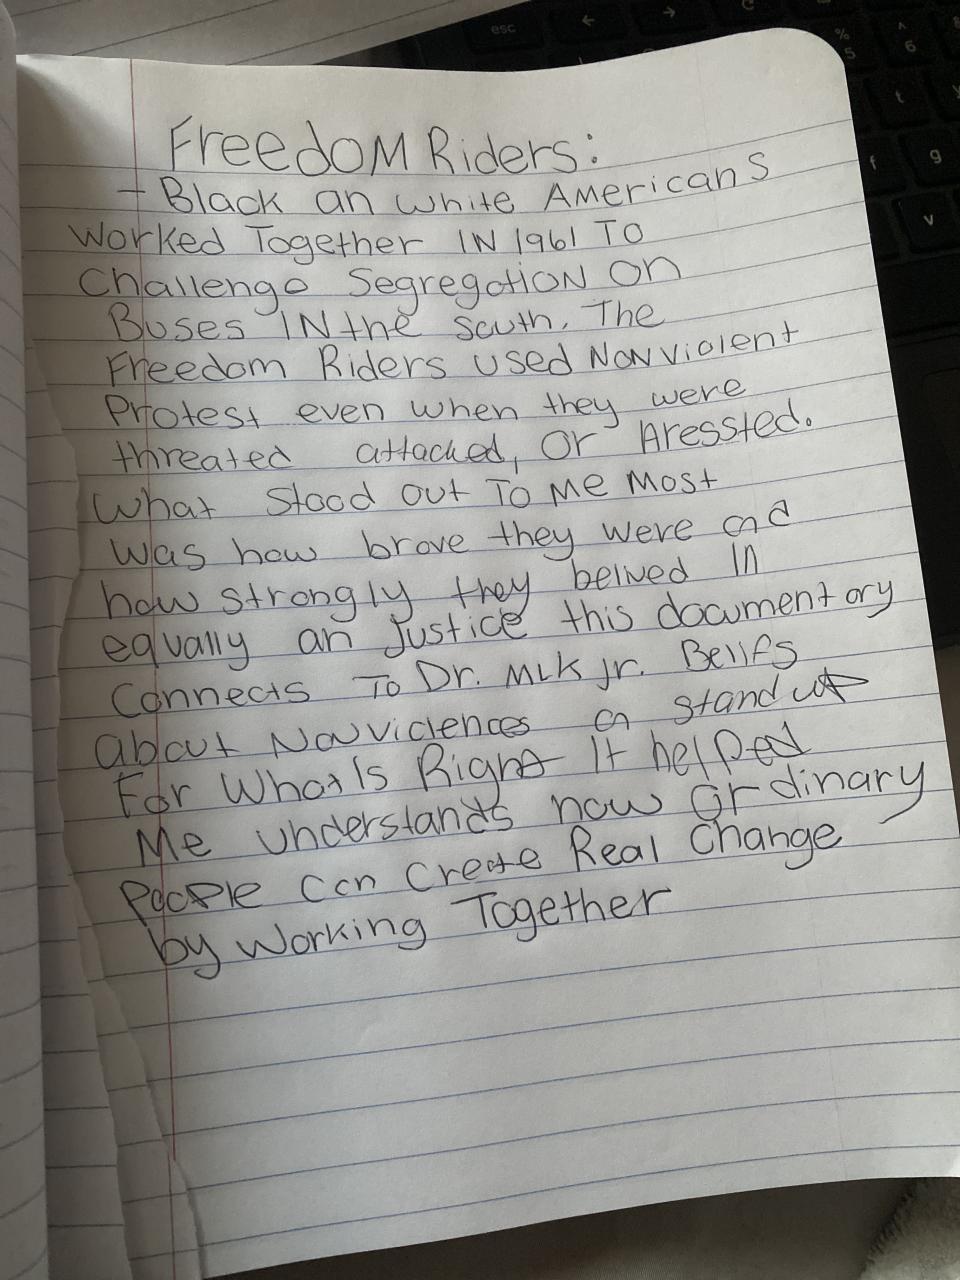 Freedom Riders:
- Black an white Americans
Worked Together IN 1961 To
Challenge Segregation On
Buses IN the south. The
Freedom Riders used Nonviolent
Protest even when they were
threated attacked, Or Aressted.
What Stood out To Me Most
Was how brave they were and
how strongly they belived In
equally an Justice this documentary
Connects To Dr. MLK Jr. Belifs
about Nonviolences an stand up
For What Is Right It helped
Me understands how Ordinary
People Can Create Real Change
by Working Together
esc
% 5
^ 6
t
f
g
v